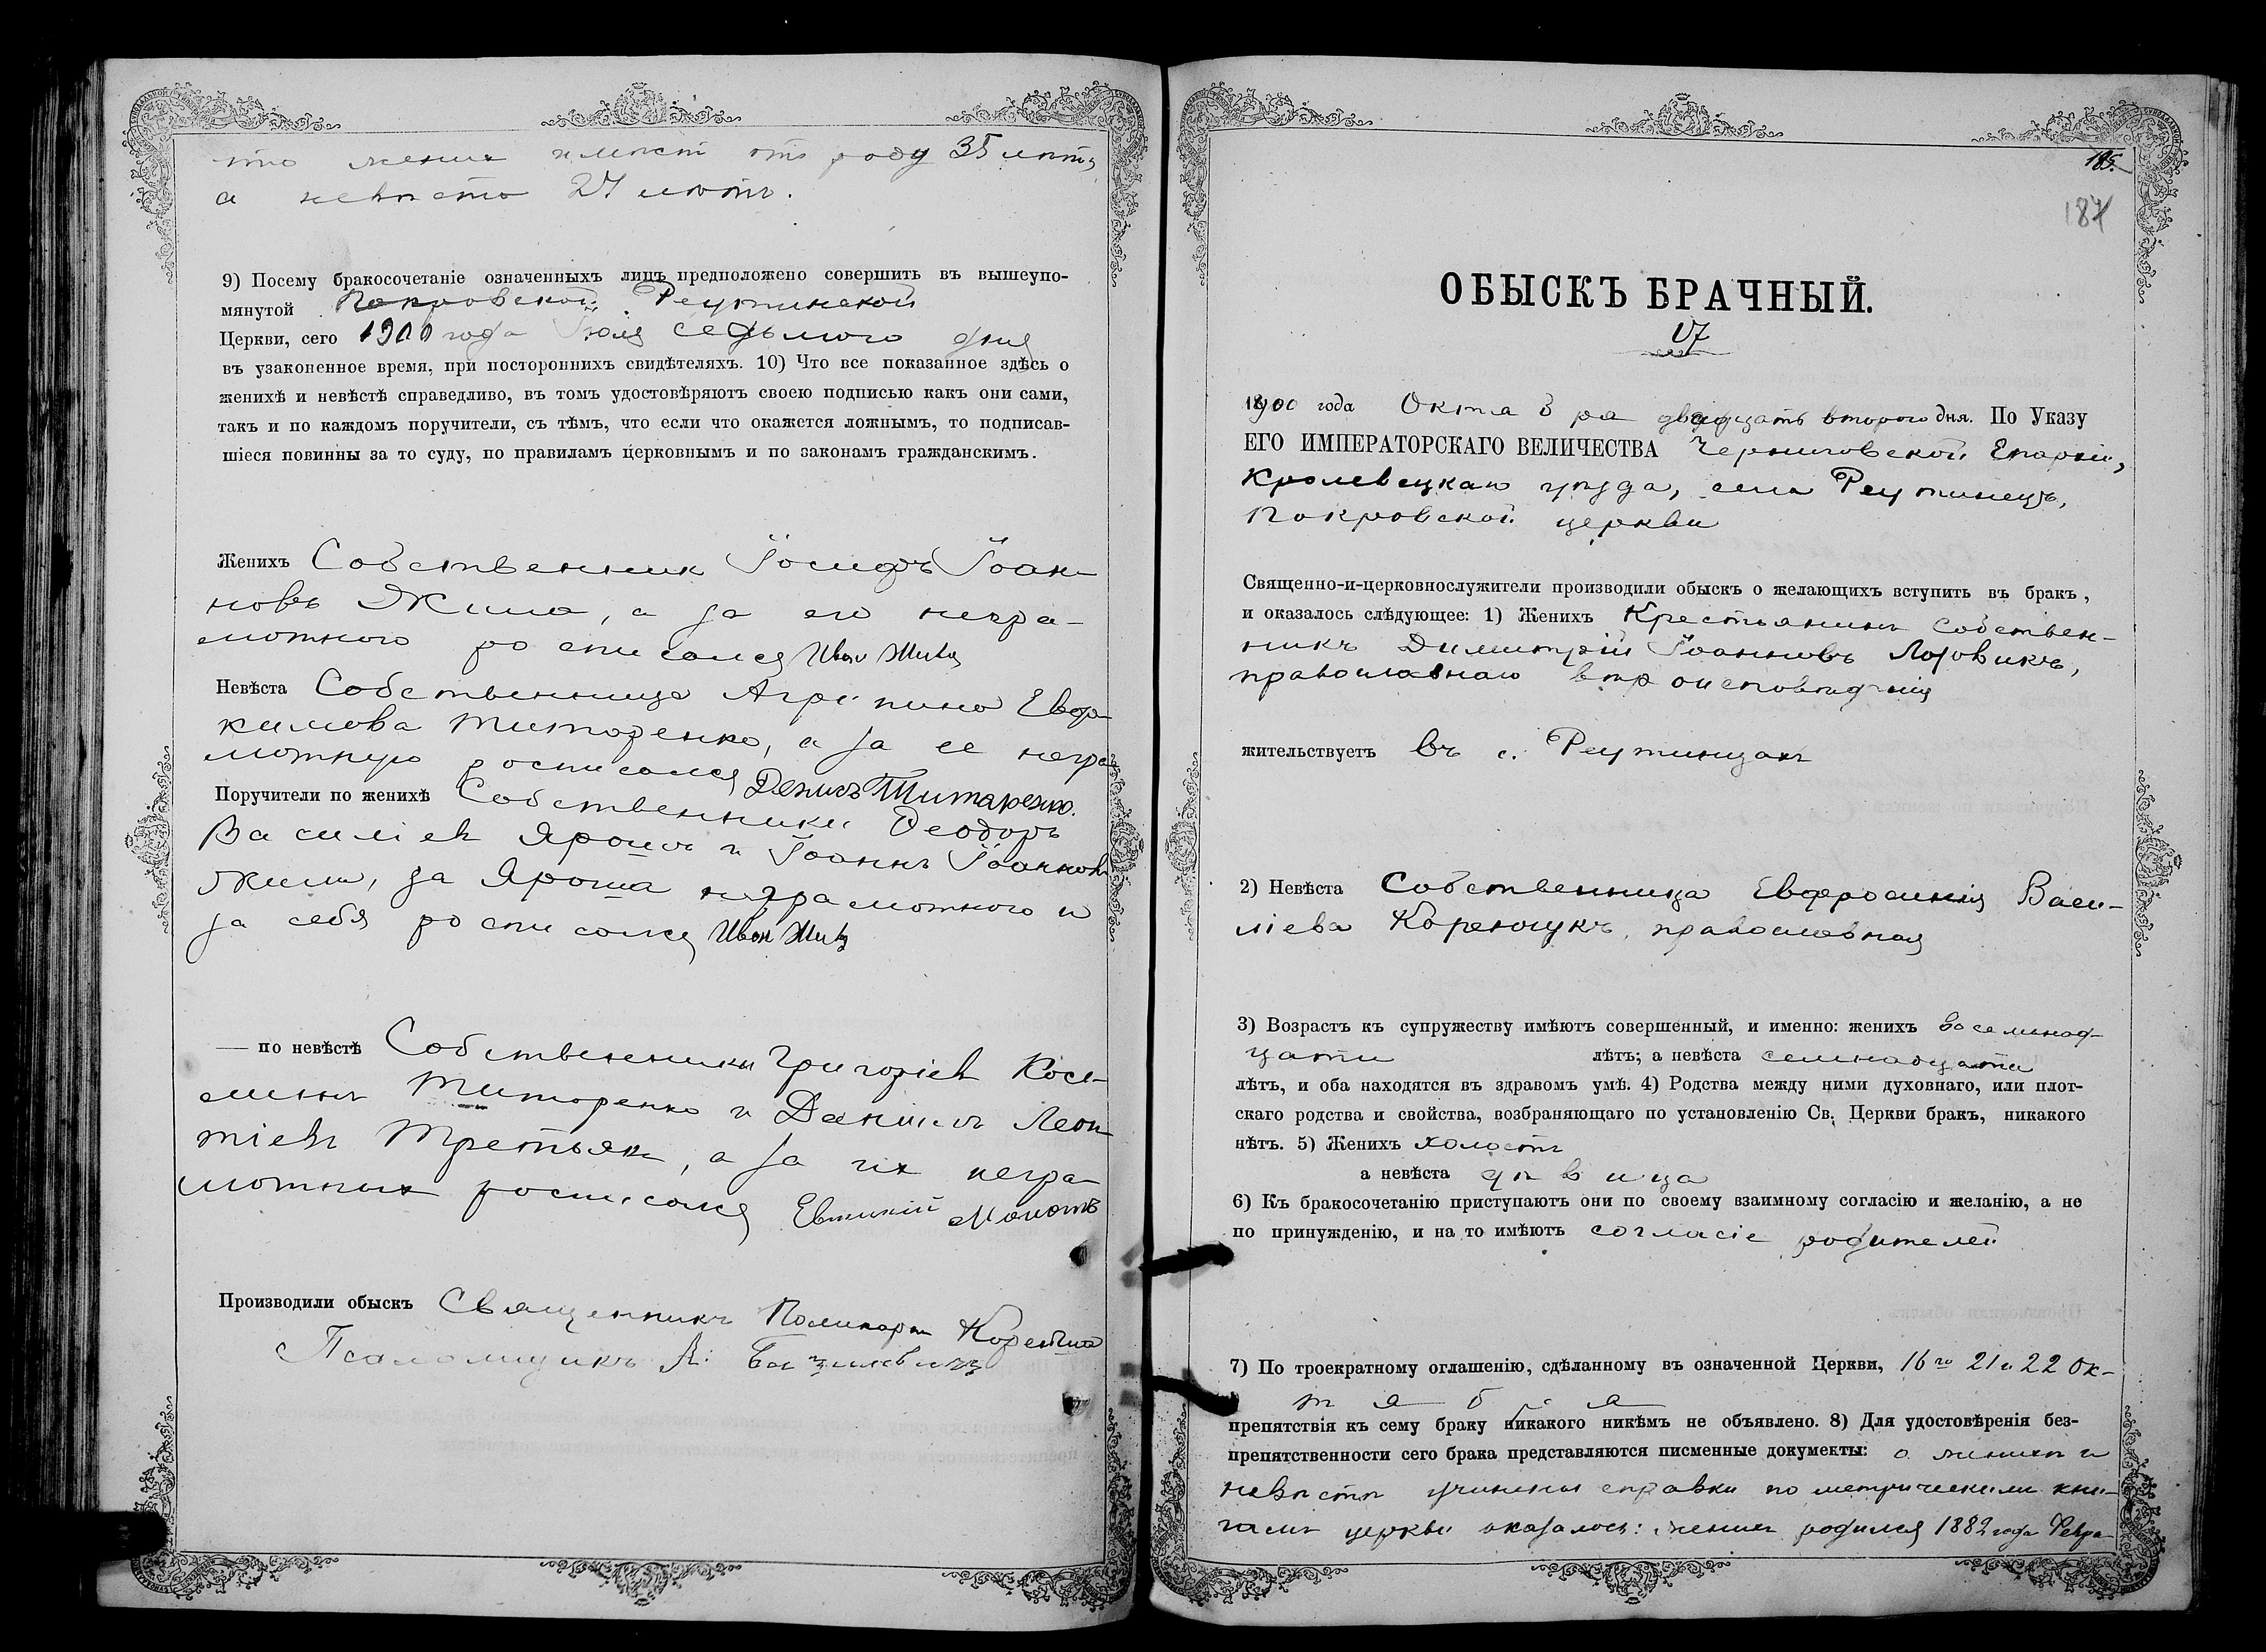 что жених имеет от роду 35 летъ,
а невеста 24 летъ.
9) Посему бракосочетаніе означенныхъ лицъ предположено совершить въ вышеупо-
мянутой Покровской Реутинской
Церкви, сего 1900 года Іюля седьмого дня
въ узаконенное время, при постороннихъ свидѣтеляхъ. 10) Что все показанное здѣсь о
женихѣ и невѣстѣ справедливо, въ томъ удостовѣряютъ своею подписью какъ они сами,
такъ и по каждомъ поручители, съ тѣмъ, что если что окажется ложнымъ, то подписав-
шіеся повинны за то суду, по правиламъ церковнымъ и по законамъ гражданскимъ.
Женихъ Собственник Іосифъ Іоан-
новъ а за его негра-
мотного росписался Иван
Невѣста Собственница Агрипина Евфи-
кимова Титоренко, а за ее негра-
мотную росписался Денисъ Титаренко.
Поручители по женихѣ Собственники Ѳеодоръ
Василіев Ярошъ и Іоаннъ Іоаннов
за Яроша неграмотного и
за себя росписался Иван
— по невѣстѣ Собственники Григоріев Кось-
минъ Титоренко и Даниилъ Леон-
тіевъ Третьяк, а за их негра-
мотных росписался Евтихій
Производили обыскъ Священникъ Поликарп
Псаломщикъ А.
185.
187
ОБЫСКЪ БРАЧНЫЙ.
17
1900 года Октября двадцать второго дня. По Указу
ЕГО ИМПЕРАТОРСКАГО ВЕЛИЧЕСТВА Черниговской Епархіи,
Кролевецкаго уезда, села Реутинецъ,
Покровской церкви
Священно-и-церковнослужители производили обыскъ о желающихъ вступить въ бракъ,
и оказалось слѣдующее: 1) Женихъ Крестьянинъ собствен-
никъ Димитрій Іоанновъ Лозовикъ,
православнаго вероисповеданія
жительствуетъ въ с. Реутинцах
2) Невѣста Собственница Евфросинія Васи-
ліева Коренчукъ, православная
3) Возрастъ къ супружеству имѣютъ совершенный, и именно: женихъ восемнад-
цати лѣтъ; а невѣста семнадцати
лѣтъ, и оба находятся въ здравомъ умѣ. 4) Родства между ними духовнаго, или плот-
скаго родства и свойства, возбраняющаго по установленію Св. Церкви бракъ, никакого
нѣтъ. 5) Женихъ холостъ
а невѣста девица
6) Къ бракосочетанію приступаютъ они по своему взаимному согласію и желанію, а не
по принужденію, и на то имѣютъ согласіе родителей
7) По троекратному оглашенію, сдѣланному въ означенной Церкви, 16го 21 и 22 Ок-
тября
препятствія къ сему браку никакого никѣмъ не объявлено. 8) Для удостовѣренія без-
препятственности сего брака представляются писменные документы: о женихе и
невесте учинены справки по метрическим кни-
гамъ церкви оказалось: жених родился 1882 года Февра-